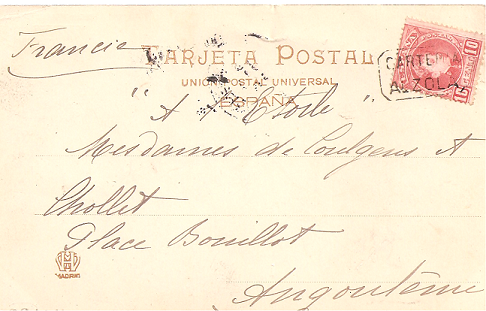 Francia
TARJETA POSTAL
UNION POSTAL UNIVERSAL
ESPAÑA
CARTERIA
ALZOLA
10
"A l'Etoile"
Mesdames de Coulgens &
Chollet
Place Bouillot
Angoulême
MADRID